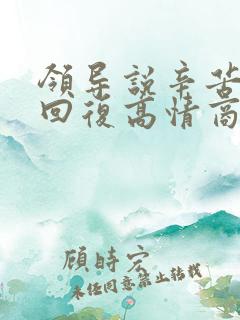 領导說辛苦
回復高情商
顾時宏
未经同意禁止转载